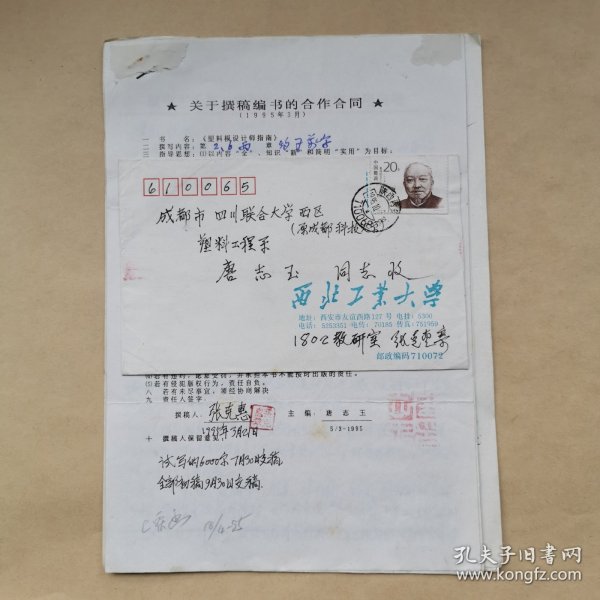 ★ 关于撰稿编书的合作合同 ★
(1995年3月)
一 书 名:《塑料模设计师指南》
二 撰写内容:第 2.6 章
三 指导思想:(1)以内容“全”、知识“新”和简明“实用”为目标;
中国邮政
20分
610065
成都市 四川联合大学 西区
(原成都科技
塑料工程系
唐志玉 同志收
西北工业大学
地址:西安市友谊西路127号 电挂:5300
电话:5253351 电传:70185 传真:751959
1802教研室 张克惠
邮政编码710072
(5)若有侵犯版权行为,责任自负。
八 若有未尽事宜,需经协商解决
九 责任人签字
撰稿人: 张克惠 主编:唐志玉
1995年5月21日 5/3-1995
十 撰稿人保留意见:
试写的6000字7月30日交稿,
全部初稿9月30日交稿.
孔夫子旧书网
www.kongfz.com